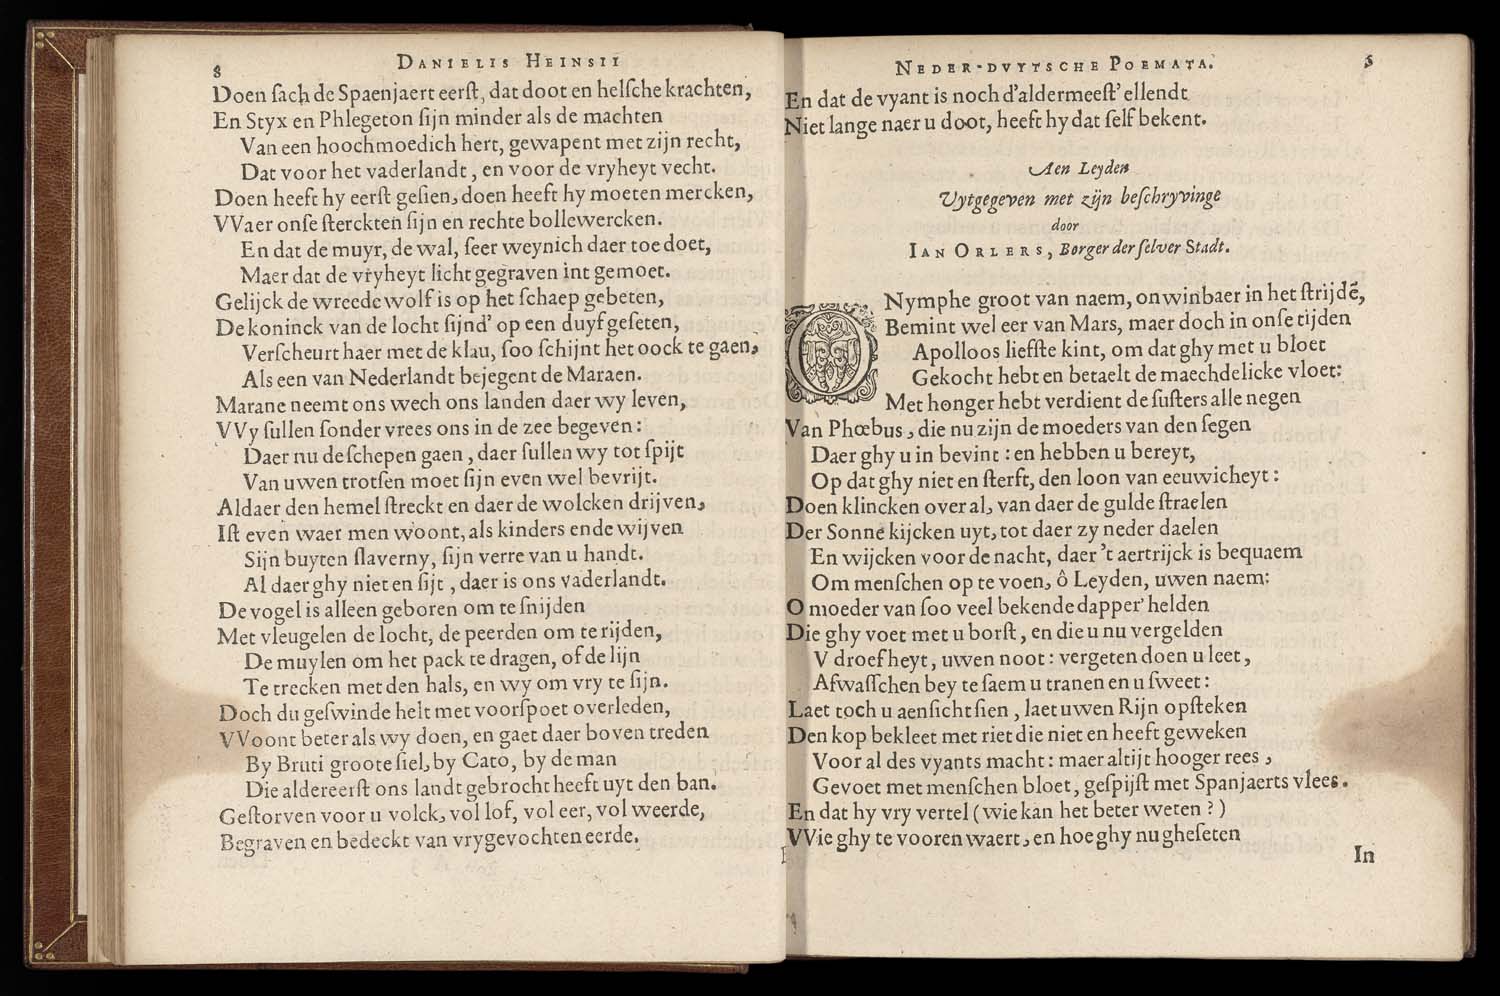 8
DANIELIS HEINSII
Doen ſach de Spaenjaert eerſt, dat doot en helſche krachten,
En Styx en Phlegeton ſijn minder als de machten
Van een hoochmoedich hert, gewapent met zijn recht,
Dat voor het vaderlandt, en voor de vryheyt vecht.
Doen heeft hy eerſt geſien, doen heeft hy moeten mercken,
VVaer onſe ſterckten ſijn en rechte bollewercken.
En dat de muyr, de wal, ſeer weynich daer toe doet,
Maer dat de vryheyt licht gegraven int gemoet.
Gelijck de wreede wolf is op het ſchaep gebeten,
De koninck van de locht ſijnd' op een duyf geſeten,
Verſcheurt haer met de klau, ſoo ſchijnt het oock te gaen,
Als een van Nederlandt bejegent de Maraen.
Marane neemt ons wech ons landen daer wy leven,
VVy ſullen ſonder vrees ons in de zee begeven:
Daer nu de ſchepen gaen, daer ſullen wy tot ſpijt
Van uwen trotſen moet ſijn even wel bevrijt.
Aldaer den hemel ſtreckt en daer de wolcken drijven,
Iſt even waer men woont, als kinders ende wijven
Sijn buyten ſlaverny, ſijn verre van u handt.
Al daer ghy niet en ſijt, daer is ons vaderlandt.
De vogel is alleen geboren om te ſnijden
Met vleugelen de locht, de peerden om te rijden,
De muylen om het pack te dragen, of de lijn
Te trecken met den hals, en wy om vry te ſijn.
Doch du geſwinde helt met voorſpoet overleden,
VVoont beter als wy doen, en gaet daer boven treden
By Bruti groote ſiel, by Cato, by de man
Die aldereerſt ons landt gebrocht heeft uyt den ban.
Geſtorven voor u volck, vol lof, vol eer, vol weerde,
Begraven en bedeckt van vrygevochten eerde.
NEDER-DVYTSCHE POEMATA.
5
En dat de vyant is noch d'aldermeeſt' ellendt
Niet lange naer u doot, heeft hy dat ſelf bekent.
Aen Leyden
Uytgegeven met zijn beſchryvinge
door
IAN ORLERS, Borger der ſelver Stadt.
O Nymphe groot van naem, onwinbaer in het ſtrijdẽ,
Bemint wel eer van Mars, maer doch in onſe tijden
Apolloos liefſte kint, om dat ghy met u bloet
Gekocht hebt en betaelt de maechdelicke vloet:
Met honger hebt verdient de ſuſters alle negen
Van Phœbus, die nu zijn de moeders van den ſegen
Daer ghy u in bevint: en hebben u bereyt,
Op dat ghy niet en ſterft, den loon van eeuwicheyt:
Doen klincken over al, van daer de gulde ſtraelen
Der Sonne kijcken uyt, tot daer zy neder daelen
En wijcken voor de nacht, daer 't aertrijck is bequaem
Om menſchen op te voen, ô Leyden, uwen naem:
O moeder van ſoo veel bekende dapper' helden
Die ghy voet met u borſt, en die u nu vergelden
V droefheyt, uwen noot: vergeten doen u leet,
Afwaſſchen bey te ſaem u tranen en u ſweet:
Laet toch u aenſicht ſien, laet uwen Rijn opſteken
Den kop bekleet met riet die niet en heeft geweken
Voor al des vyants macht: maer altijt hooger rees,
Gevoet met menſchen bloet, geſpijſt met Spanjaerts vlees.
En dat hy vry vertel (wie kan het beter weten?)
VVie ghy te vooren waert, en hoe ghy nu gheſeten
In